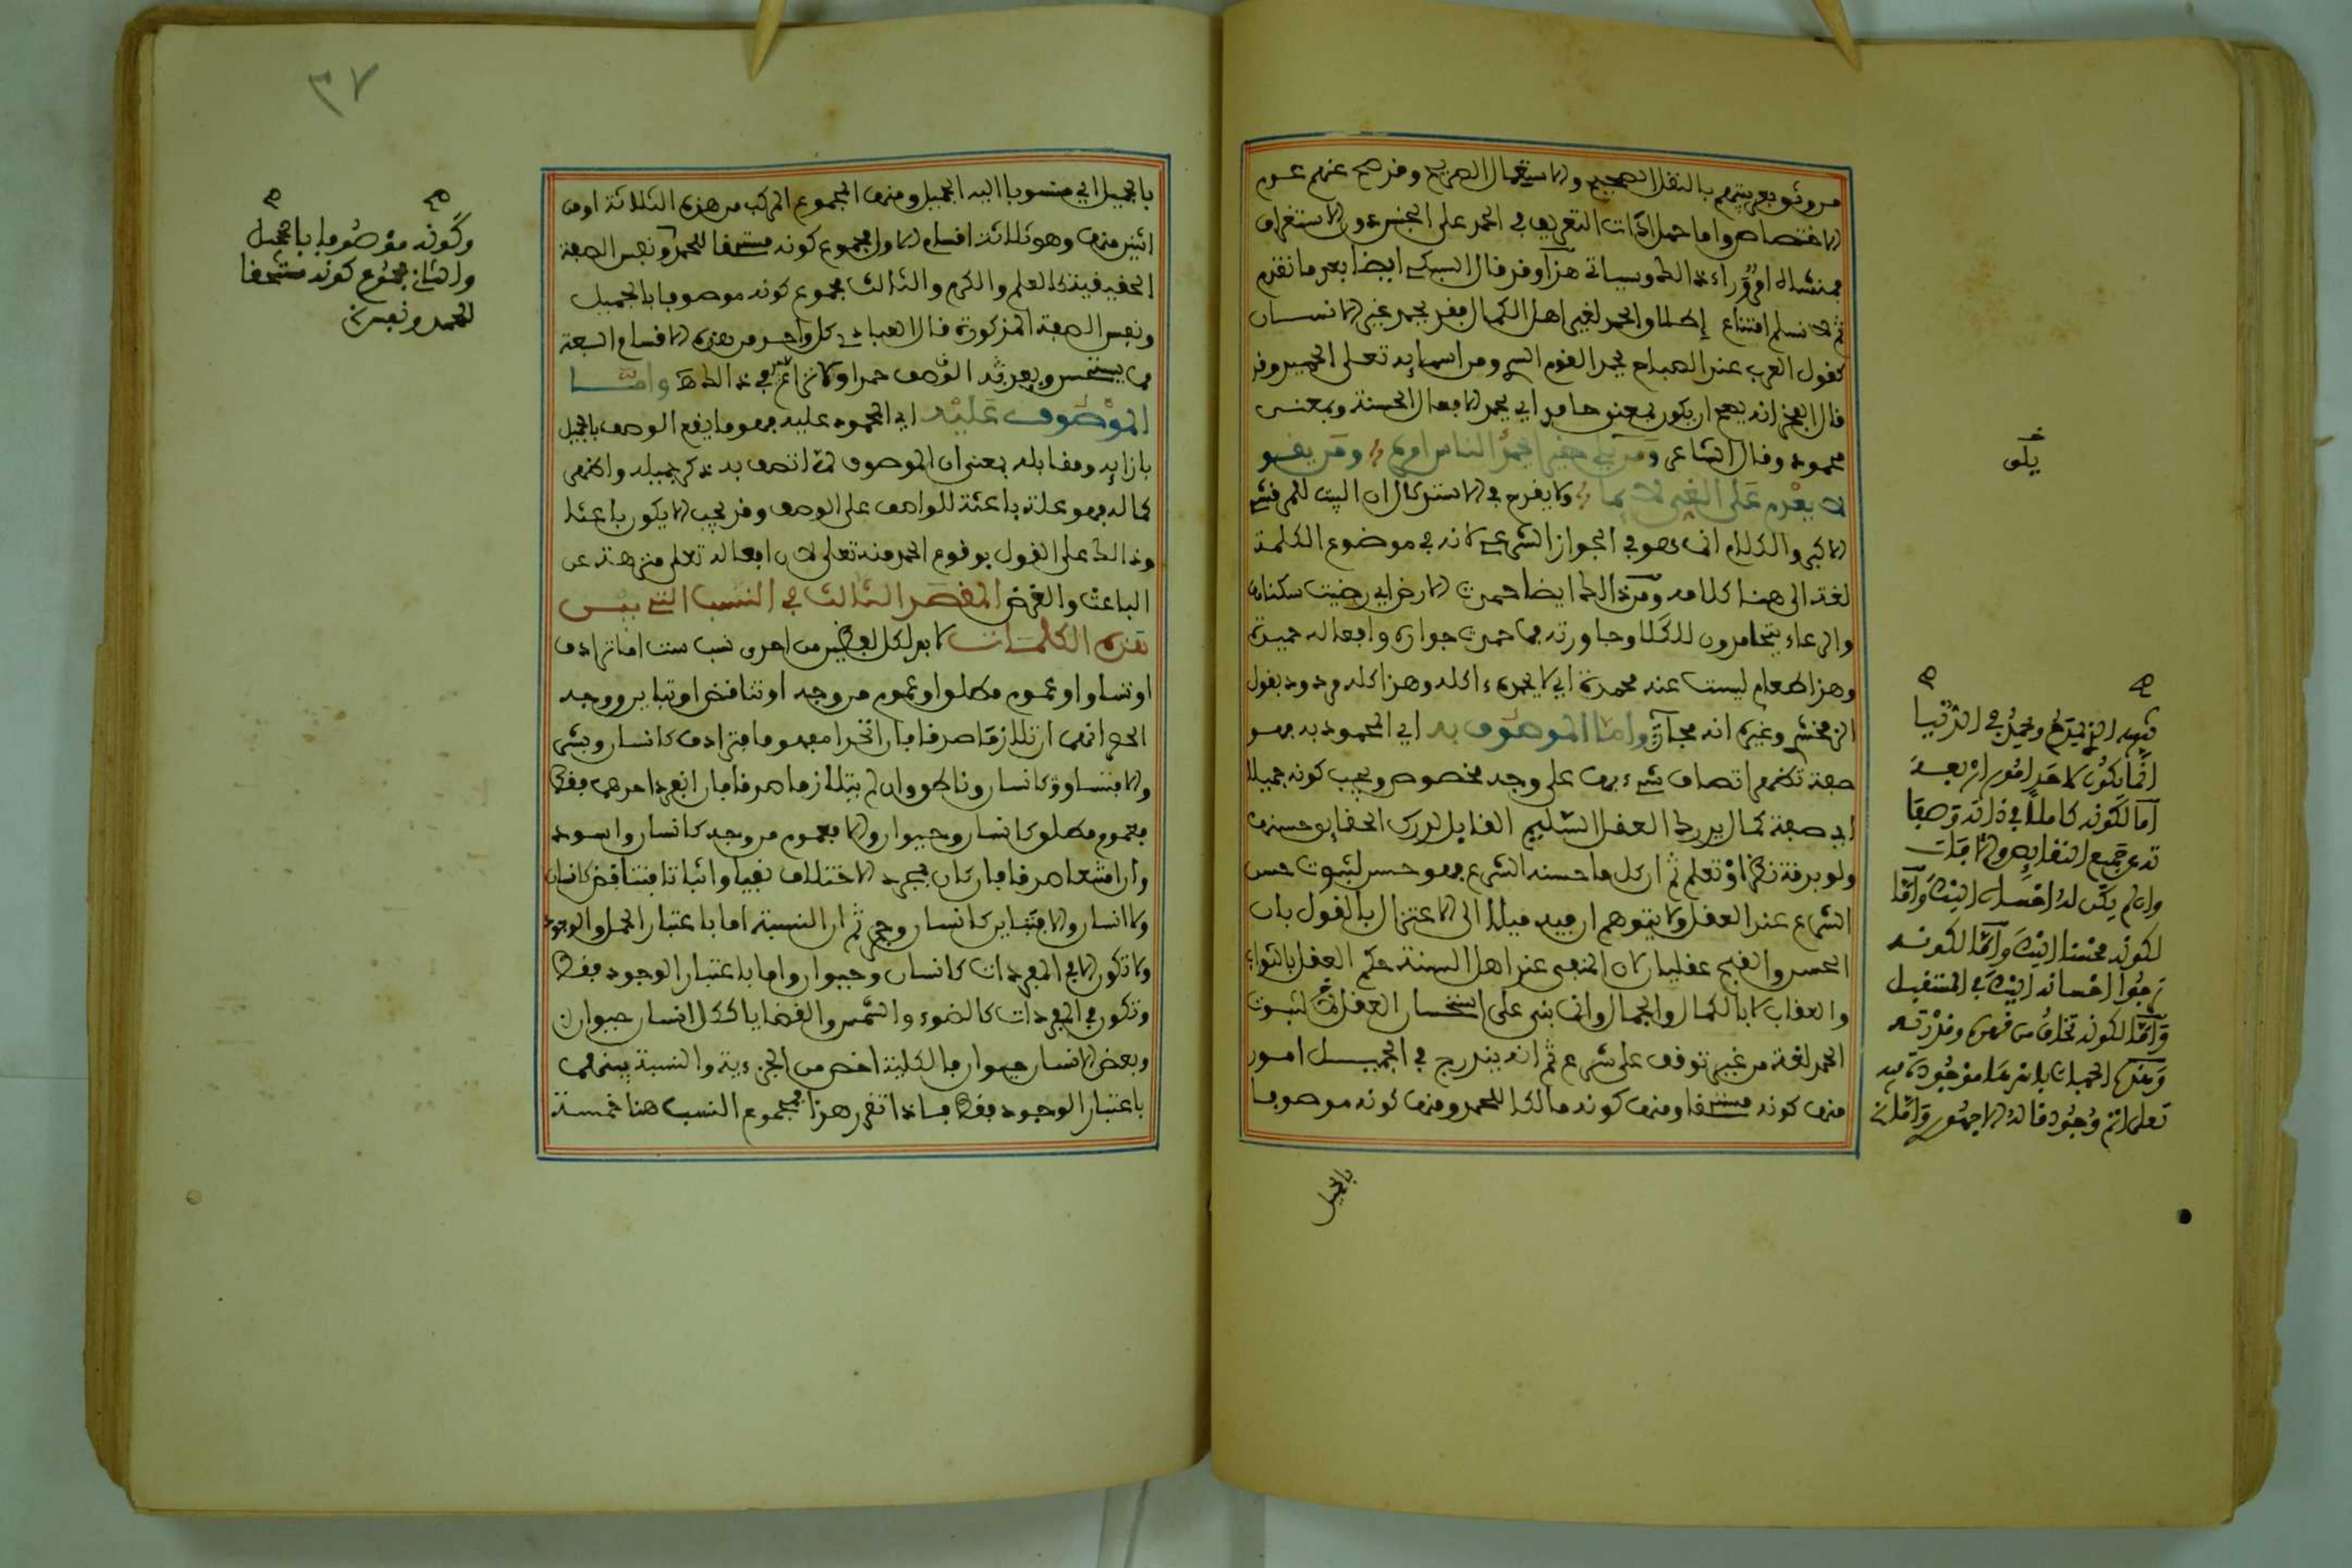 من وثوق بعربيتهم بالنقل الصحيح والاستعمال الصريح وقد صح عنهم عدم
الاختصاص واما حمل اداة التعريف في الحمد على الجنس او الاستغراق
فمنشأه امر وراء ذالك وسياتي هذا وقد قال السبكي ايضا بعد ما تقدم
ثم لا نسلم امتناع إطلاق الحمد لغير اهل الكمال فقد يحمد غير الانسان
كقول العرب عند الصباح يحمد القوم السرى ومن اسمايه تعلى الحميد وقد
قال الفخر انه يصح ان يكون بمعنى حامد اي يحمد الافعال الحسنة وبمعنى
محمود وقال الشاعر ومن يلق خيرا يحمد الناس امره ومن يغو
لا يعدم على الغي لايما ولا يقدح في الاستدلال ان البيت للمرقش
الاكبر والكلام انما هو في الجواز الشرعي لانه في موضوع الكلمة
لغة الى هنا كلامه ومن ذالك ايضا حمدت الارض اي رضيت سكناها
والرعاء يتحامدون للكلا وجاورته فما حمدت جواره وافعاله حميدة
وهذا طعام ليست عنده محمدة اي لا يحمده اكله وهذا كله مردود بقول
الزمخشري وغيره انه مجاز واما الموصوف به اي المحمود به فهو
صفة تظهر اتصاف شيء بها على وجه مخصوص ويجب كونه جميلا
اي صفة كمال يدرك العقل السليم القابل لدرك الحقايق حسنها
ولو بدقة نظر او تعلم ثم ان كل ما حسنه الشرع فهو حسن لثبوت حسن
الشرع عند العقل ولا يتوهم ان فيه ميلا الى الاعتزال بالقول بان
الحسن والقبح عقليان لان المنفي عند اهل السنة حكم العقل بالثواب
والعقاب لا بالكمال والجمال وانما بني على استحسان العقل لثبوت
الحمد لغة من غير توقف على شرع ثم انه يندرج في الجميل امور
منها كونه مستحقا ومنها كونه مالكا للحمد ومنها كونه موصوفا
بالجميل
يلق
في الدنيا
انما يكون لاحد امور اربعة
اما لكونه كاملا في ذاته وصفا
ته عن جميع النقايص والافات
وان لم يكن له احسان اليك واما
لكونه محسنا اليك واما لكونه
ترجوا احسانه اليك في المستقبل
واما لكونه تخاف من قهره وقدرته
وهذه الجهات باسرها موجودة فيه
تعلى
٣٧
بالجميل اي منسوبا اليه الجميل ومنها المجموع المركب من هذه الثلاثة او من
اثنين منها وهو ثلاثة اقسام الاول مجموع كونه مستحقا للحمد ونفس الصفة
الحقيقية كالعلم والكرم والثالث مجموع كونه موصوفا بالجميل
ونفس الصفة المذكورة قال العبادي كل واحد من هذه الاقسام السبعة
مما يستحسن ويعد ثم الوصف حمدا ولا نزاع في ذالك واما
الموصوف عليه اي المحمود عليه فهو ما يقع الوصف بالجميل
بازايه ومقابله بمعنى ان الموصوف لما اتصف به ذكر جميله واظهر
كماله فهو علة باعثة للواصف على الوصف وقد يجب الا يكون باعثا
وذالك على القول بوقوع الحمد منه تعلى لان افعاله تعلى منزهة عن
الباعث والغرض المقصد الثالث في النسب التي بين
هذه الكلمات لا بد لكل لفظين من احدى نسب ست اما ترادف
او تساو او عموم مطلق او عموم من وجه او تناقض او تباين ووجه
الحصر انهما ان تلازما صدقا فان اتحدا مفهوما فترادف كانسان وبشر
والا فتساو كانسان وناطق وان لم يتلازما صدقا فان انفرد احدهما فقط
فعموم مطلق كانسان وحيوان والا فعموم من وجه كانسان واسود
وان امتنعا صدقا فان كان بمجرد الاختلاف نفيا واثباتا فتناقض كانسان
ولا انسان والا فتباين كانسان وحجر ثم ان النسبة اما باعتبار الحمل والوجود
ولا تكون الا في المفردات كانسان وحيوان واما باعتبار الوجود فقط
وتكون في المفردات كالضوء والشمس والقضايا ككل انسان حيوان
وبعض الانسان حيوان فالكلية اخص من الجزءية والنسبة بينهما
باعتبار الوجود فقط فاذا تقرر هذا فمجموع النسب هنا خمسة
وكونه موصوفا بالجميل
والثاني مجموع كونه مستحقا
للحمد ونفس